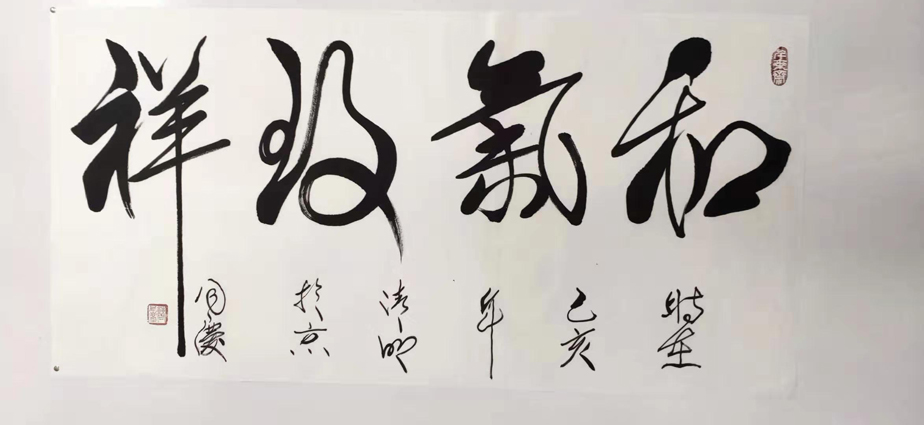 和氣致祥
時在
己亥
年
清明
於京
同慶